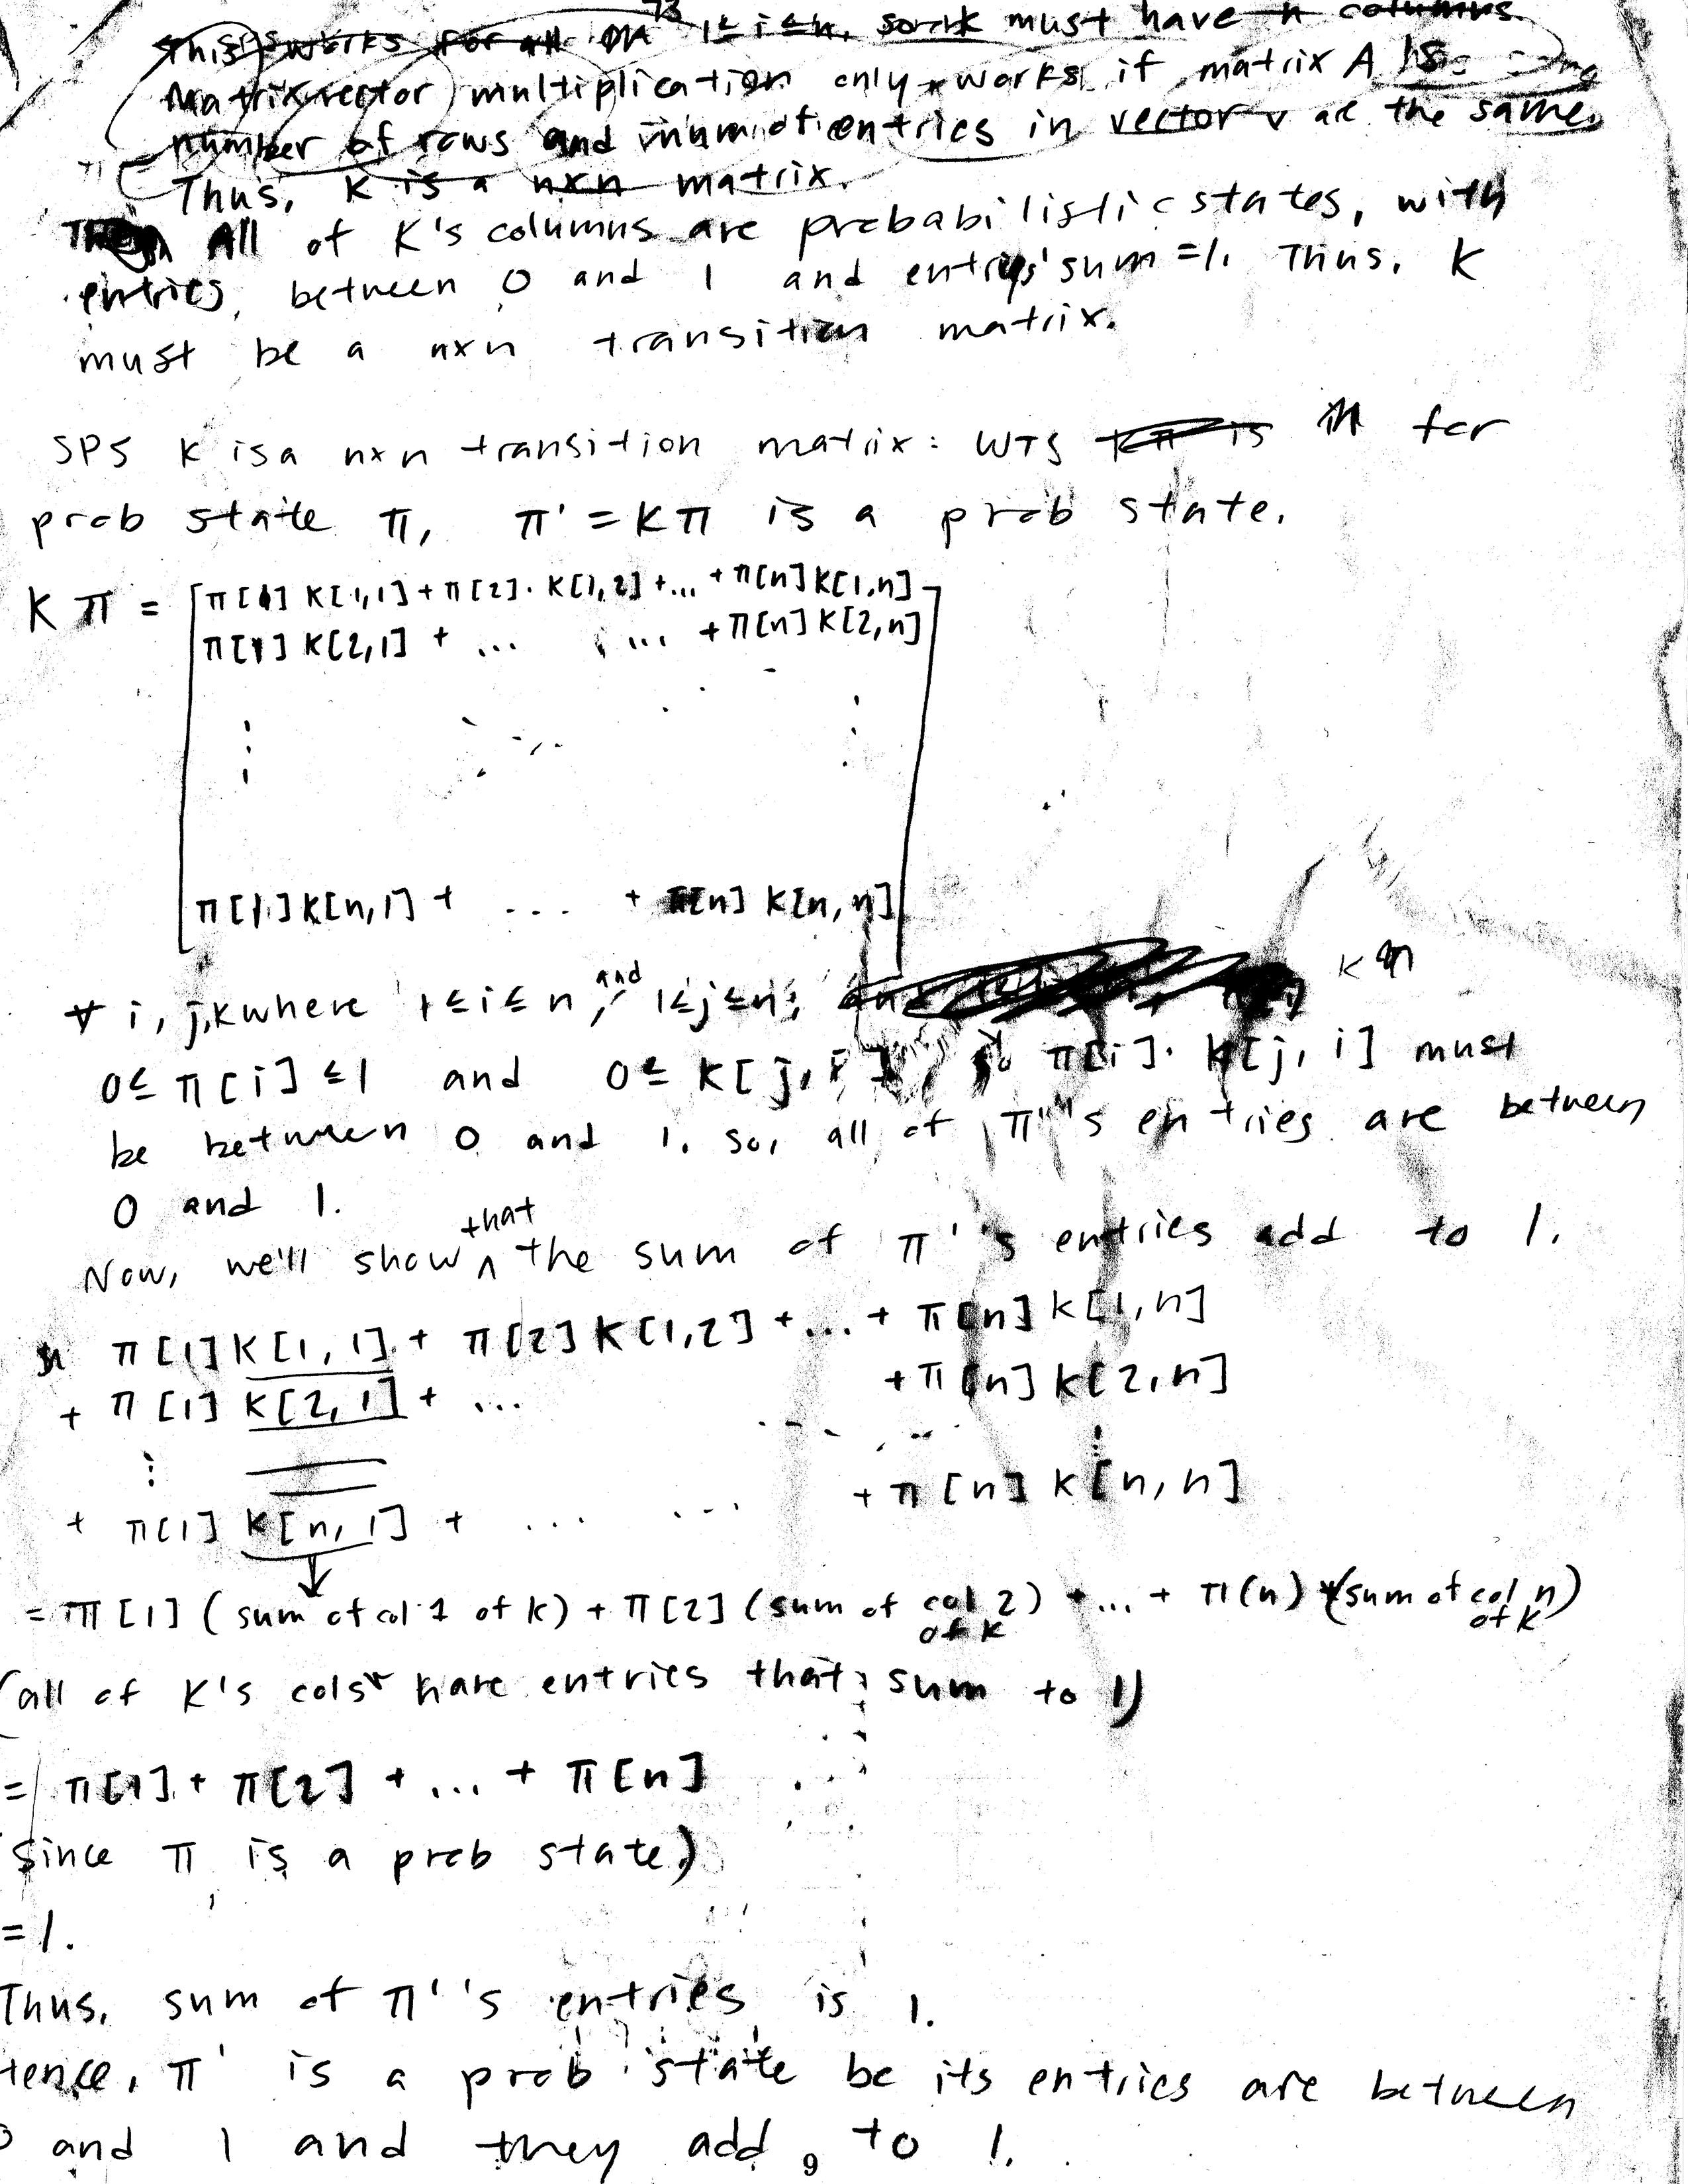 This works for all 1≤i≤n, so K must have n columns.
Matrix vector multiplication only works if matrix A
number of rows and num of entries in vector v are the same.
Thus, K is a nxn matrix.
All of K's columns are probabilistic states, with
entries between 0 and 1 and entries' sum =1. Thus, K
must be a nxn transition matrix.
SPS K is a nxn transition matrix: WTS for
prob state π, π' = Kπ is a prob state.
Kπ = [π[1] K[1,1] + π[2]. K[1,2] +... + π[n] K[1,n]
π[1] K[2,1] + ... ... + π[n] K[2,n]
⋮
π[1] K[n,1] + ... + π[n] K[n,n]]
∀ i, j,k where 1≤i≤n, and 1≤j≤n,
0≤ π[i] ≤1 and 0≤ K[j, π[i]. K[j, i] must
be between 0 and 1. So, all of π''s entries are between
0 and 1.
Now, we'll show that the sum of π''s entries add to 1.
π[1] K[1,1] + π[2] K[1,2] +...+ π[n] K[1,n]
+ π[1] K[2,1] + ... + π[n] K[2,n]
⋮
+ π[1] K[n,1] + ... ... + π[n] K[n,n]
= π[1] (sum of col 1 of K) + π[2] (sum of col 2 of K) +...+ π(n) (sum of col n of K)
(all of K's cols have entries that sum to 1)
= π[1] + π[2] + ... + π[n]
since π is a prob state)
=1.
Thus, sum of π''s entries is 1.
Hence, π' is a prob state bc its entries are between
0 and 1 and they add to 1.
9